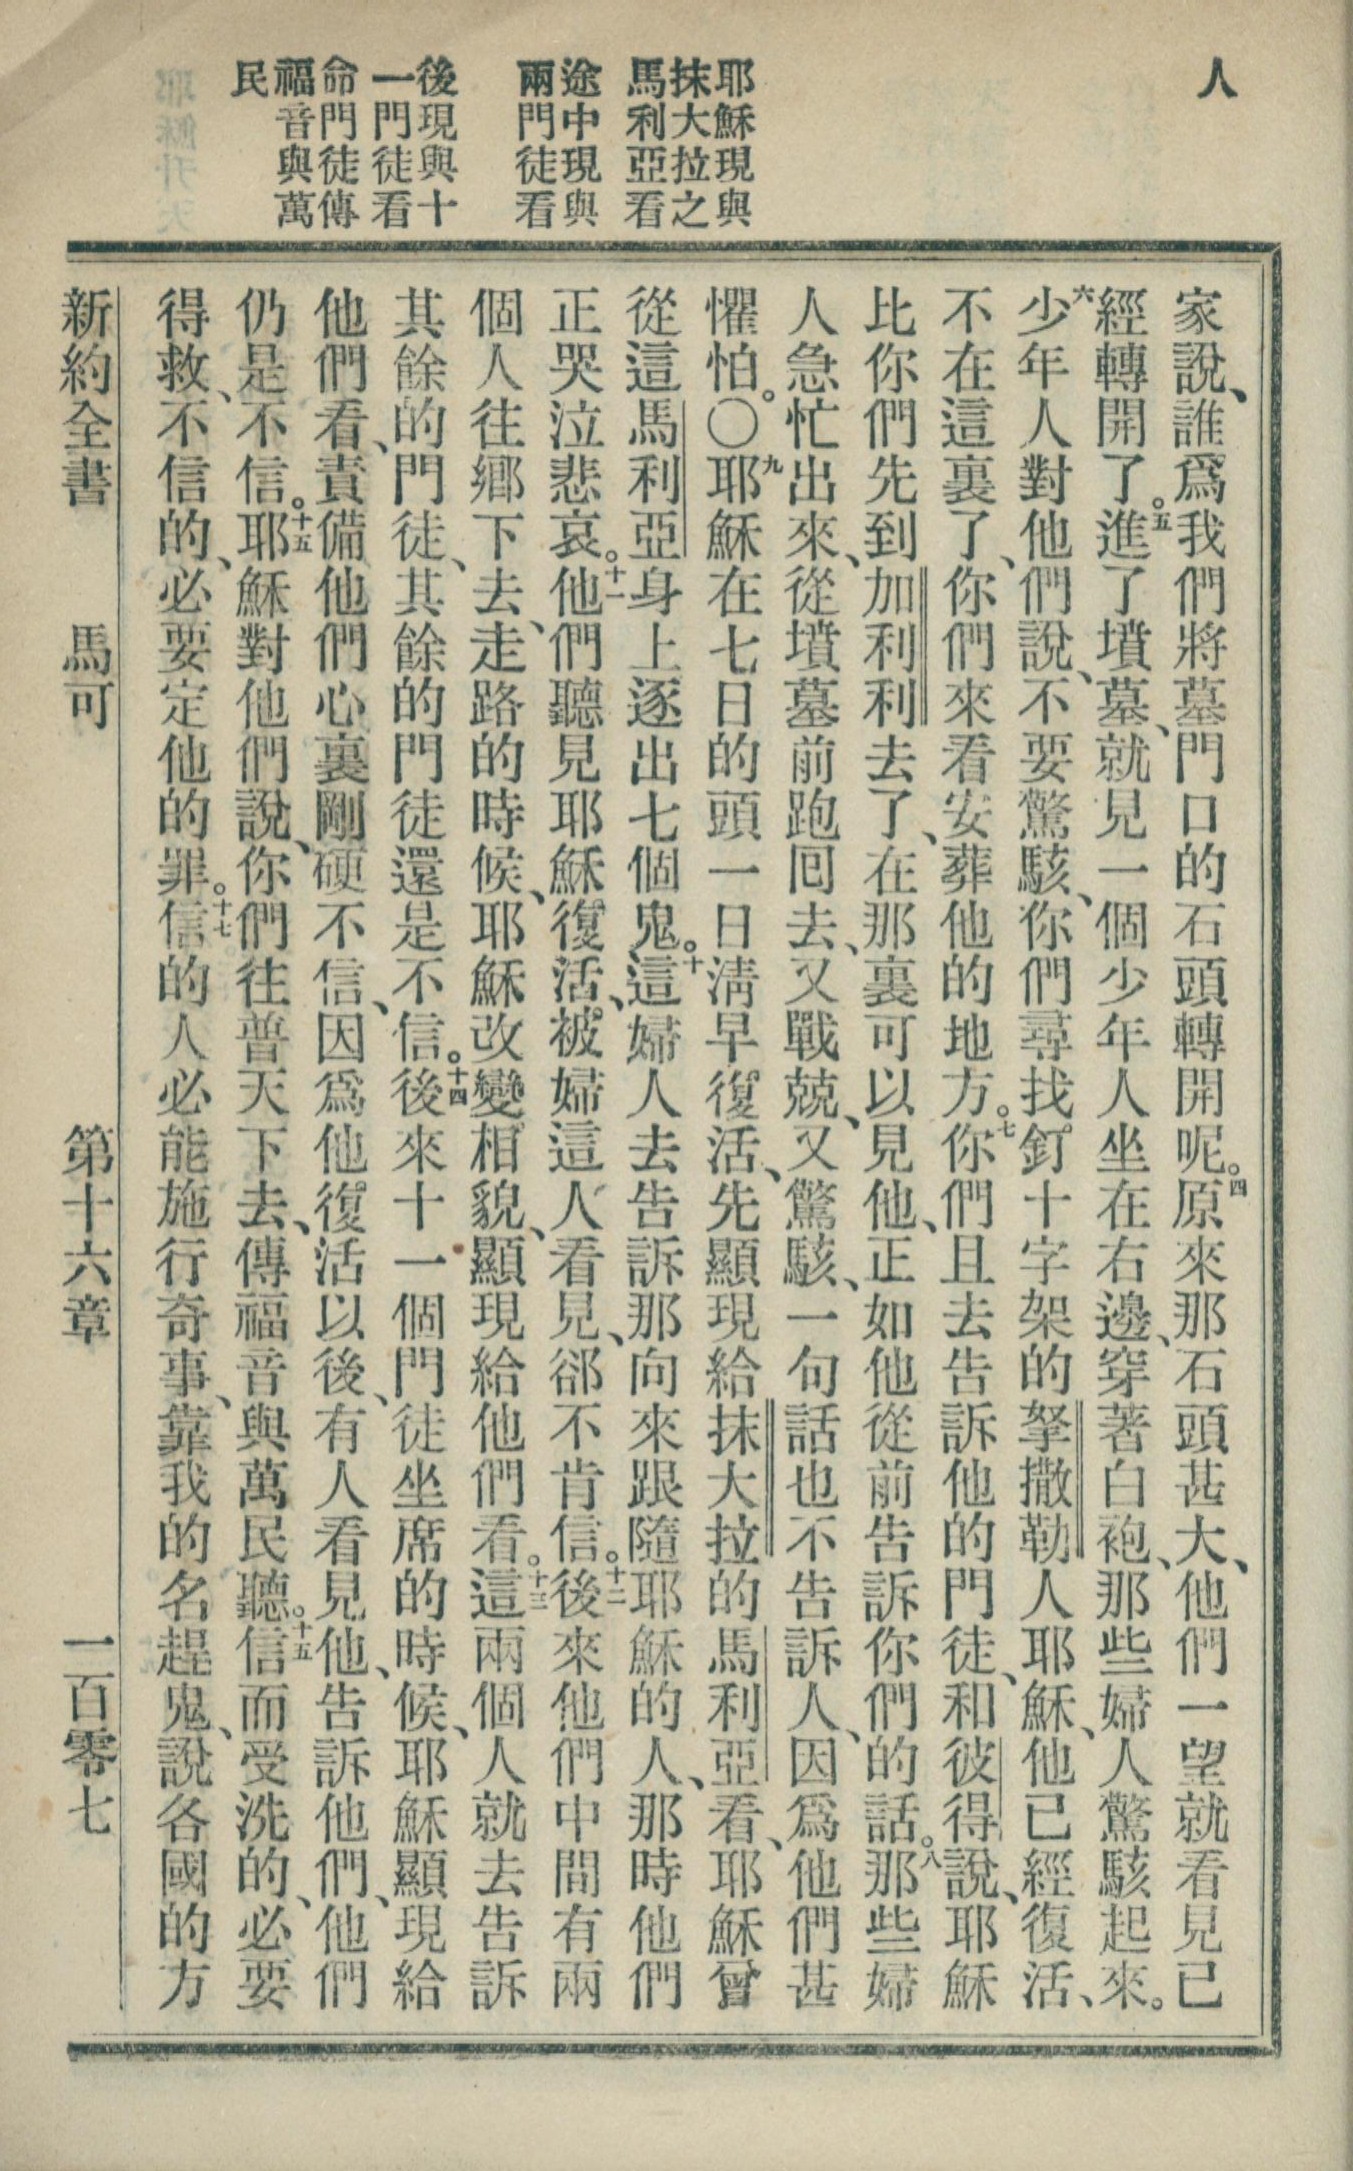 人
耶穌現與
抹大拉之
馬利亞看
途中現與
兩門徒看
後現與十
一門徒看
命門徒傳
福音與萬
民
家說、誰爲我們將墓門口的石頭轉開呢。四原來那石頭甚大、他們一望就看見已
經轉開了。五進了墳墓、就見一個少年人坐在右邊、穿著白袍、那些婦人驚駭起來。
六少年人對他們說、不要驚駭、你們尋找釘十字架的拏撒勒人耶穌、他已經復活、
不在這裏了、你們來看安葬他的地方。七你們且去告訴他的門徒、和彼得說、耶穌
比你們先到加利利去了、在那裏可以見他、正如他從前告訴你們的話。八那些婦
人急忙出來、從墳墓前跑回去、又戰兢、又驚駭、一句話也不告訴人、因爲他們甚
懼怕。〇九耶穌在七日的頭一日淸早復活、先顯現給抹大拉的馬利亞看、耶穌曾
從這馬利亞身上逐出七個鬼。十這婦人去告訴那向來跟隨耶穌的人、那時他們
正哭泣悲哀。十一他們聽見耶穌復活、被婦這人看見、卻不肯信。十二後來他們中間有兩
個人往鄉下去、走路的時候、耶穌改變相貌、顯現給他們看。十三這兩個人就去告訴
其餘的門徒、其餘的門徒還是不信。十四後來十一個門徒坐席的時候、耶穌顯現給
他們看、責備他們心裏剛硬不信、因爲他復活以後、有人看見他、告訴他們、他們
仍是不信。十五耶穌對他們說、你們往普天下去、傳福音與萬民聽。十五信而受洗的、必要
得救、不信的、必要定他的罪。十七信的人必能施行奇事、靠我的名趕鬼、說各國的方
新約全書 馬可 第十六章 一百零七